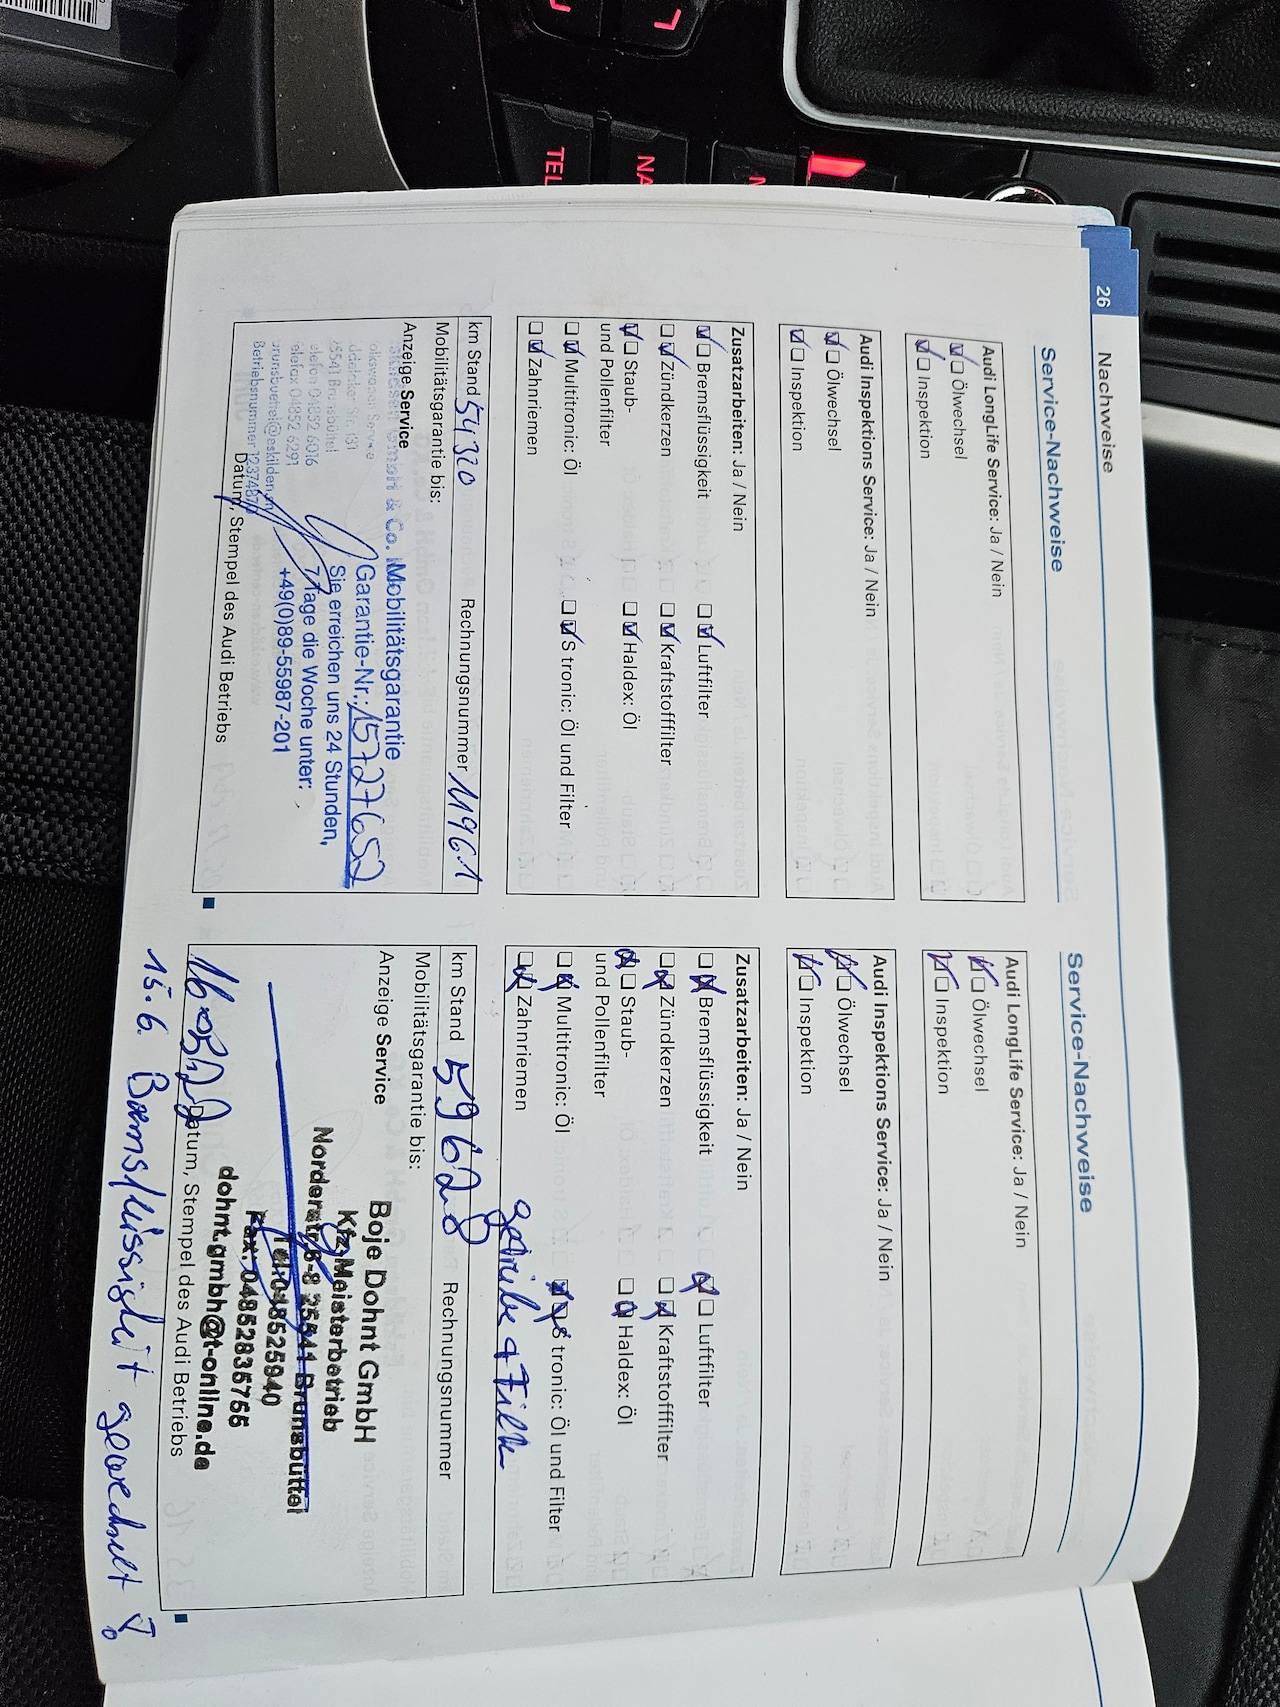 TEL
NA
26
Nachweise
Service-Nachweise
Audi LongLife Service: Ja / Nein
Ölwechsel
Inspektion
Audi Inspektions Service: Ja / Nein
Ölwechsel
Inspektion
Zusatzarbeiten: Ja / Nein
Bremsflüssigkeit
Luftfilter
Zündkerzen
Kraftstofffilter
Staub-
und Pollenfilter
Haldex: Öl
Multitronic: Öl
S tronic: Öl und Filter
Zahnriemen
km Stand 54320
Rechnungsnummer 11961
Mobilitätsgarantie bis:
Anzeige Service
GmbH & Co.
25541 Brunsbüttel
Telefon 04852 6016
Telefax 04852 6291
Betriebsnummer
Mobilitätsgarantie
Garantie-Nr.: 15727652
Sie erreichen uns 24 Stunden,
7 Tage die Woche unter:
+49(0)89-55987-201
Datum, Stempel des Audi Betriebs
Service-Nachweise
Audi LongLife Service: Ja / Nein
Ölwechsel
Inspektion
Audi Inspektions Service: Ja / Nein
Ölwechsel
Inspektion
Zusatzarbeiten: Ja / Nein
Bremsflüssigkeit
Luftfilter
Zündkerzen
Kraftstofffilter
Staub-
und Pollenfilter
Haldex: Öl
Multitronic: Öl
S tronic: Öl und Filter
Zahnriemen
km Stand 59628
Rechnungsnummer
Mobilitätsgarantie bis:
Anzeige Service
Boje Dohnt GmbH
Kfz Meisterbetrieb
Norderstr. 6-8 25541 Brunsbüttel
Tel: 048525940
Fax: 04852835755
dohnt.gmbh@t-online.de
Datum, Stempel des Audi Betriebs
15.6. Bremsflüssigkeit gewechselt !